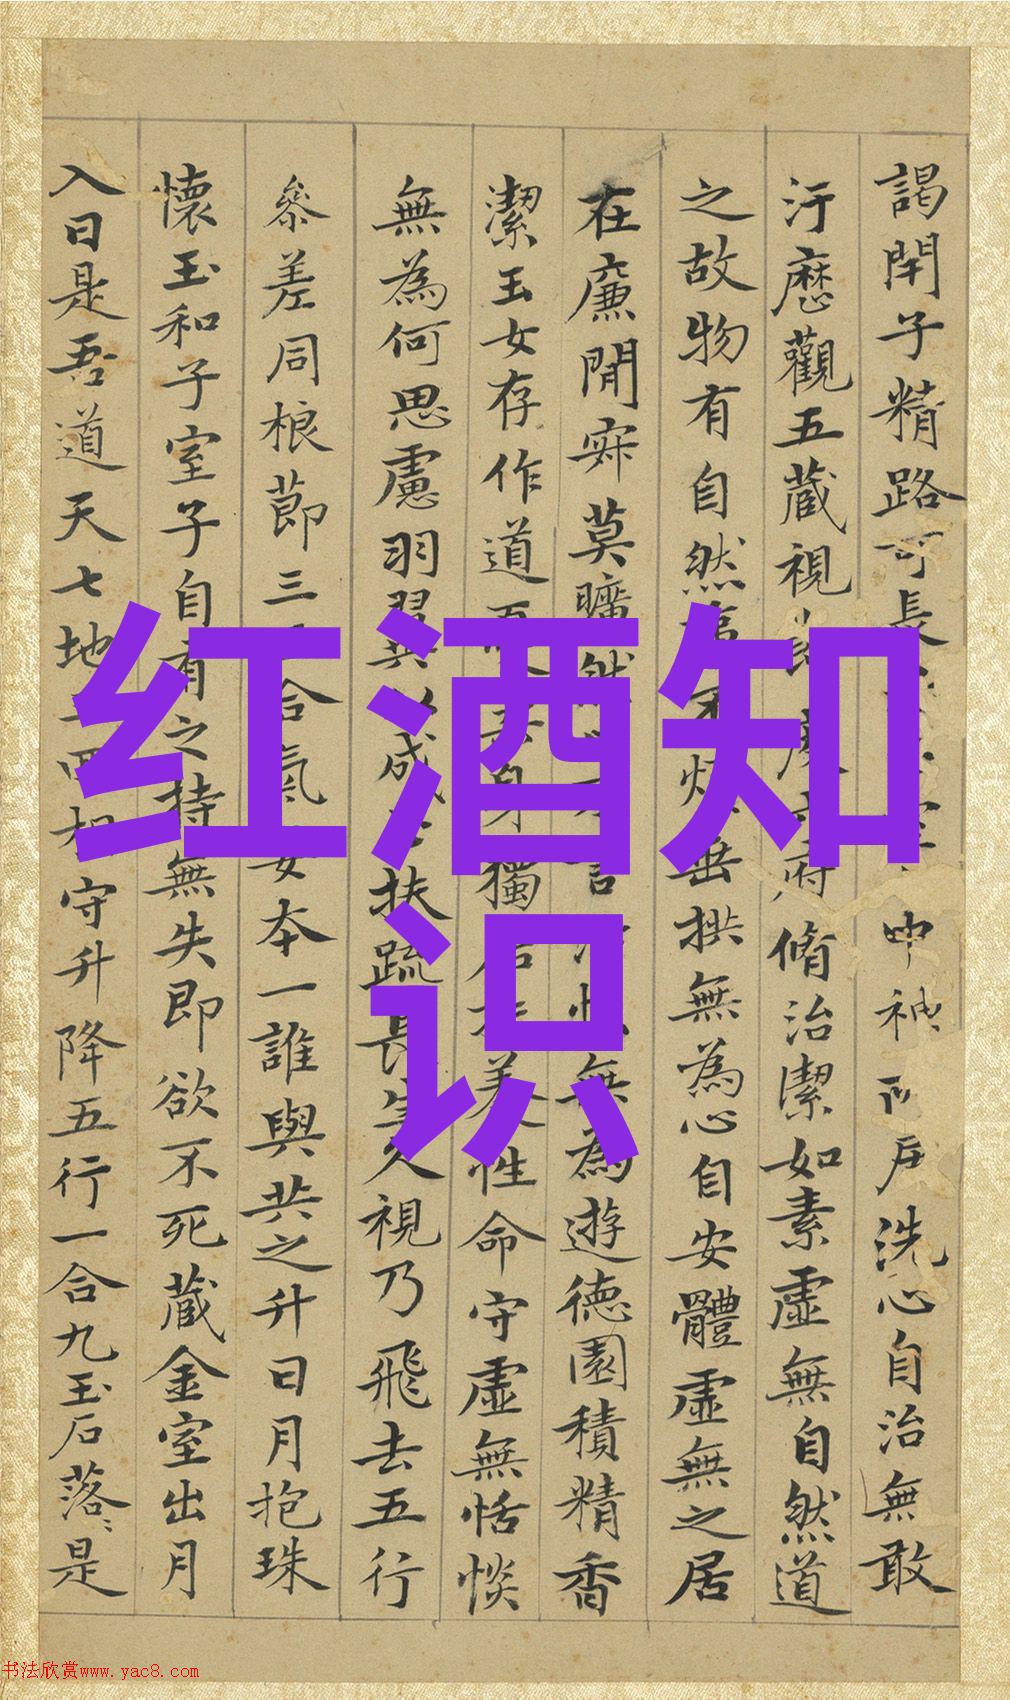 謁閇子精路可長中神所居洗心自治無敢
汙歷觀五藏視節度六府脩治潔如素虛無自然道
之故物有自然事不煩垂拱無為心自安體虛無之居
在廉閒寂莫曠然口不言恬惔無為遊德園積精香
潔玉女存作道身獨居扶養性命守虛無恬惔
無為何思慮羽翼以成扶疏長生久視乃飛去五行
參差同根節三五合氣要本一誰與共之升日月抱珠
懷玉和子室子自有之持無失即欲不死藏金室出月
入日是吾道天七地三回相守升降五行一合九玉石落〻是
红酒知
识
书法欣赏www.yac8.com